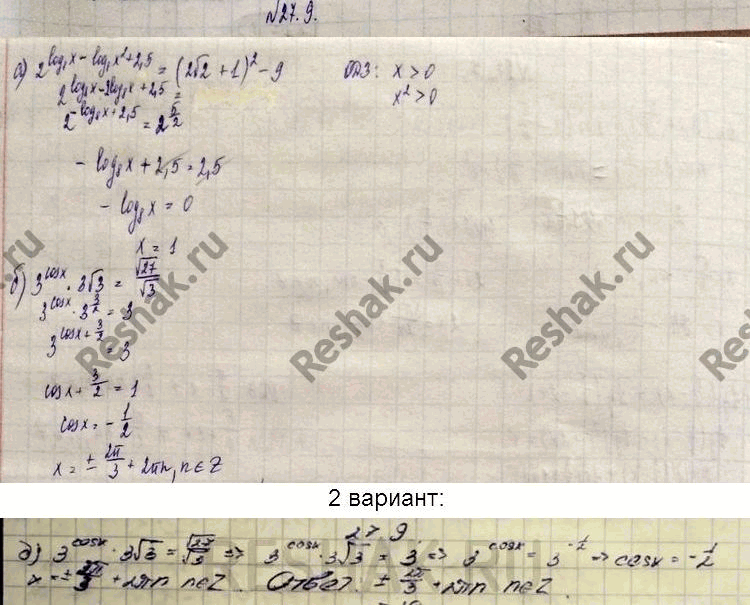 №27.9.
а) 2^(log₈x − log₈x² + 2,5) = (2√2 + 1)² − 9   ОДЗ: x > 0
2^(log₈x − 2log₈x + 2,5) =   x² > 0
2^(−log₈x + 2,5) = 2^(5/2)
− log₈x + 2,5 = 2,5
− log₈x = 0
x = 1
б) 3^cosx · 3√3 = √27/√3
3^cosx · 3^(3/2) = 3
3^(cosx + 3/2) = 3
cosx + 3/2 = 1
cosx = − 1/2
x = ± 2π/3 + 2πn, n∈Z
Reshak.ru
Reshak.ru
2 вариант:
27.9.
д) 3^cosx · 3√3 = √27/√3 => 3^cosx · 3√3 = 3 => 3^cosx = 3^(−1/2) => cosx = −1/2
x = ± 2π/3 + 2πn n∈Z. Ответ. ± 2π/3 + 2πn n∈Z.
RESHAK.RU